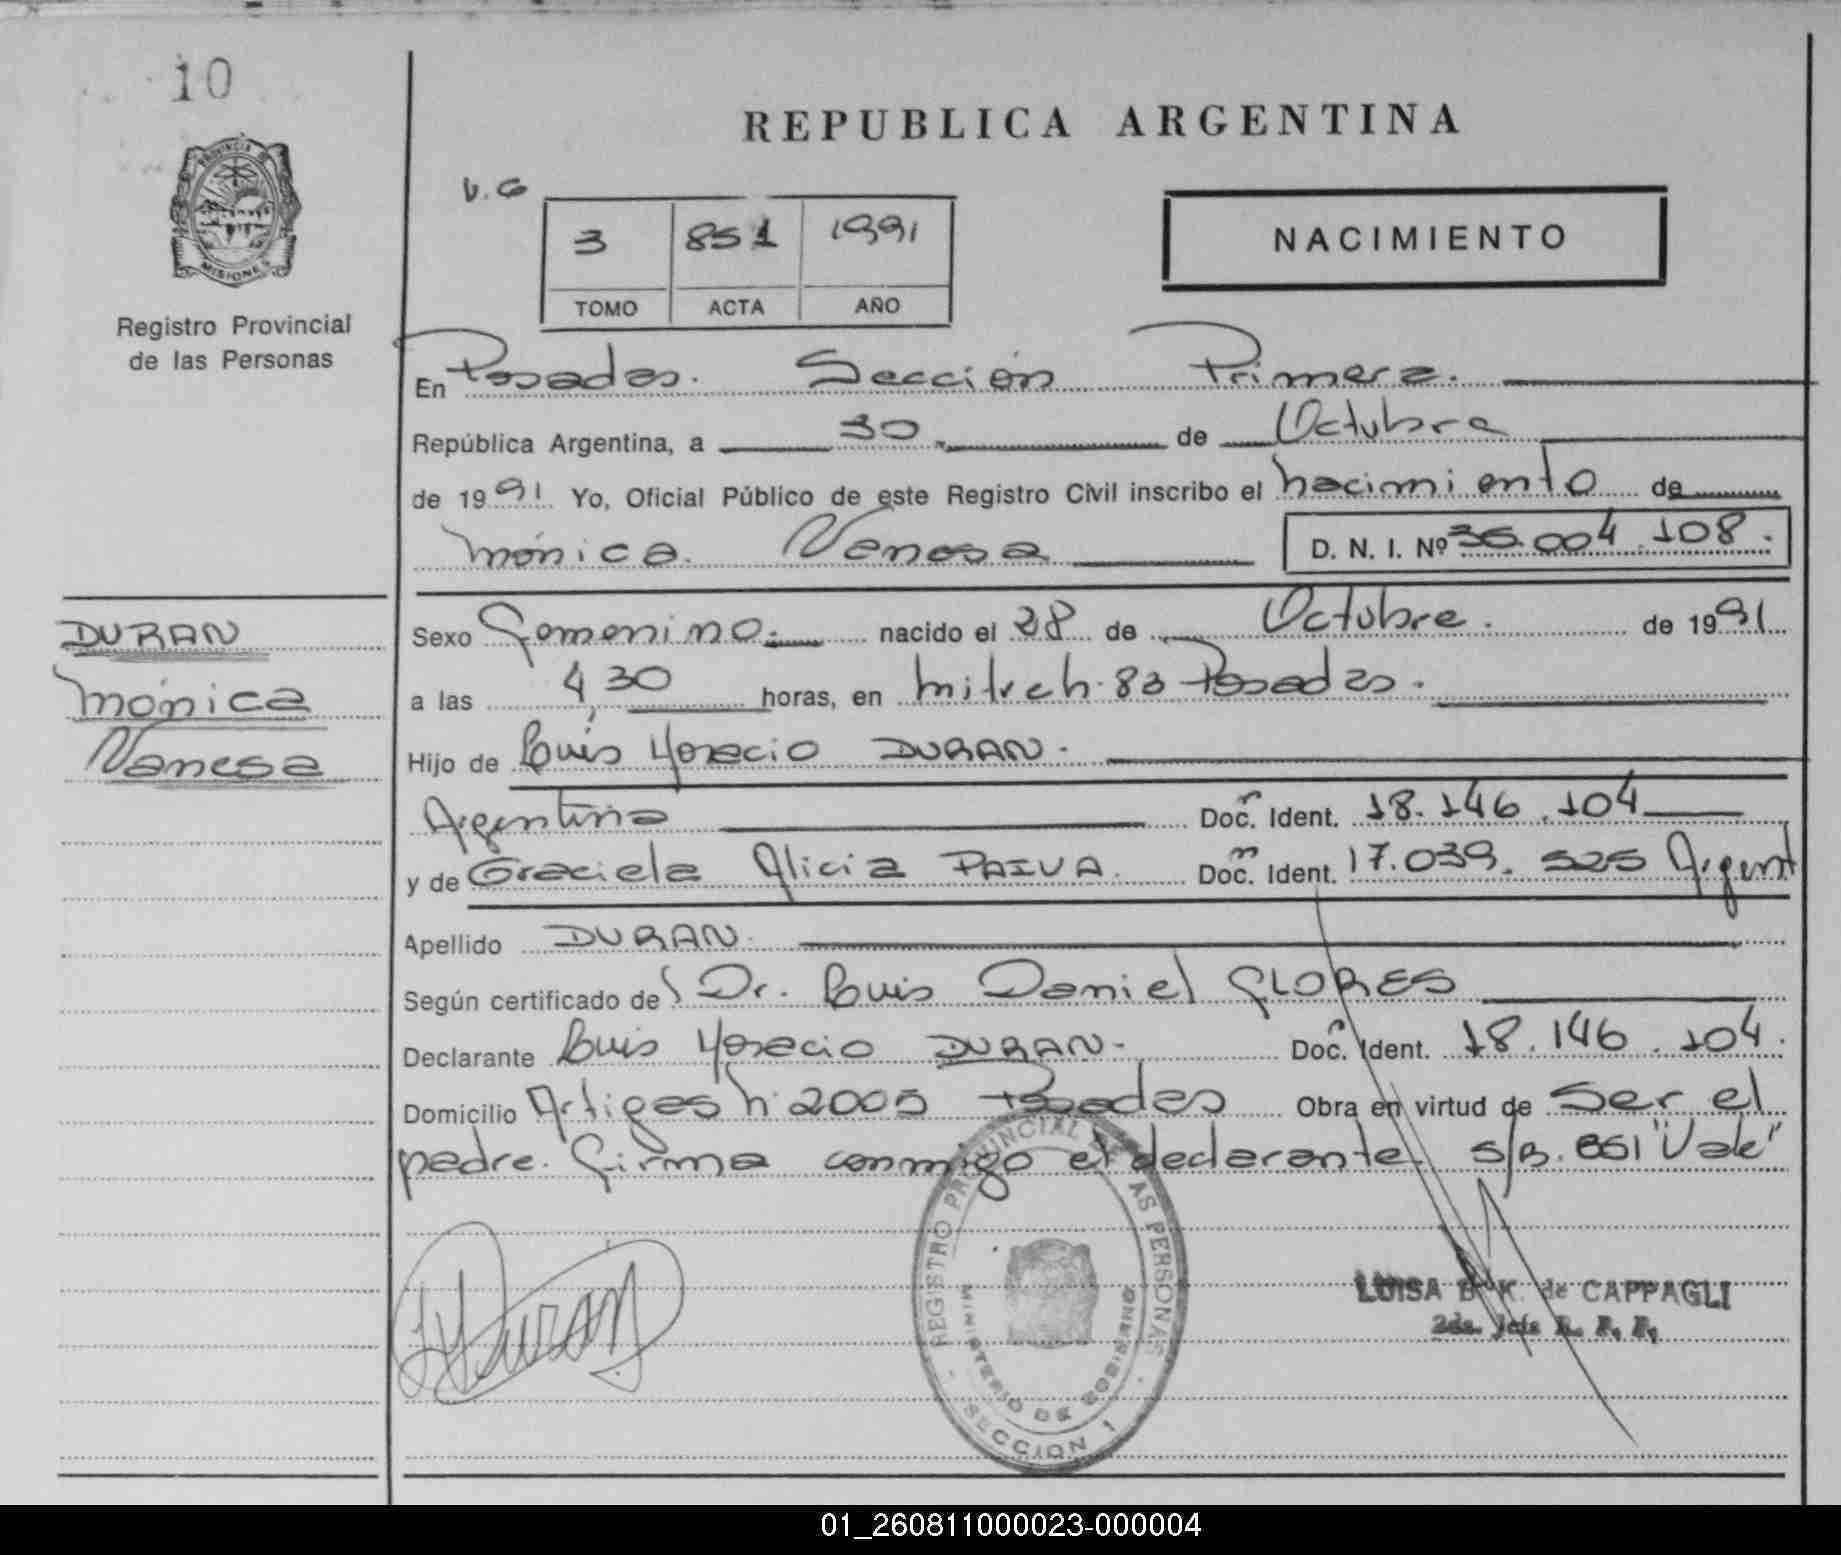 10
REPUBLICA ARGENTINA
V.G
3 851 1991
TOMO ACTA AÑO
NACIMIENTO
PROVINCIA DE
MISIONES
Registro Provincial
de las Personas
En Posadas. Sección Primera.
República Argentina, a 30 de Octubre
de 1991 Yo, Oficial Público de este Registro Civil inscribo el nacimiento de
Mónica Vanesa D. N. I. Nº 36.004.108.
DURAN
Mónica
Vanesa
Sexo Femenino. nacido el 28 de Octubre. de 1991
a las 4,30 horas, en Mitre n: 83 Posadas.
Hijo de Luis Horacio DURAN.
Argentina Doc. Ident. 18.146.104
y de Graciela Alicia PAIVA. Doc. Ident. 17.039.525 Argent
Apellido DURAN.
Según certificado del Dr. Luis Daniel FLORES
Declarante Luis Horacio DURAN. Doc. Ident. 18.146.104.
Domicilio Artigas n: 2005 Posadas Obra en virtud de Ser el
padre. Firma conmigo el declarante. s/B. 851 "Vale"
Duran
REGISTRO PROVINCIAL DE LAS PERSONAS
MINISTERIO DE GOBIERNO
SECCION 1
LUISA B. K. de CAPPAGLI
2da. Jefe R. P. P.
01_260811000023-000004